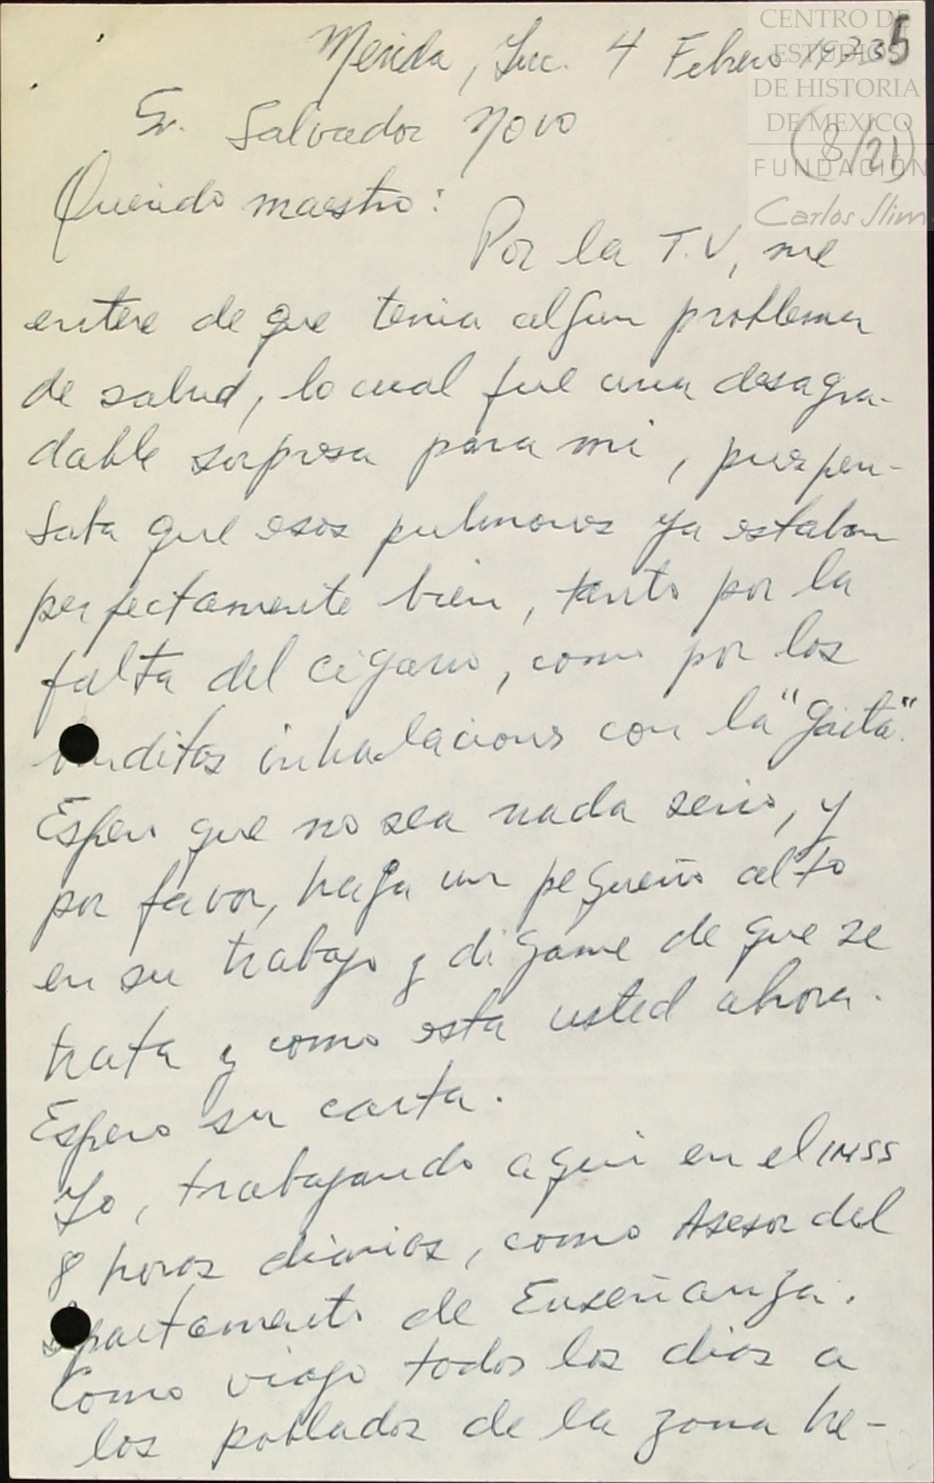 Merida, Yuc. 4 Febrero 1973
5
(8/21)
CENTRO DE
ESTUDIOS
DE HISTORIA
DE MEXICO
FUNDACIÓN
Carlos Slim
Sr. Salvador Novo
Querido maestro:
Por la T.V, me
entere de que tenia algun problema
de salud, lo cual fue una desagra-
dable sorpresa para mi, pues pen-
saba que esos pulmones ya estaban
perfectamente bien, tanto por la
falta del cigarro, como por los
inhalaciones con la "gaita".
Espero que no sea nada serio, y
por favor, haga un pequeño alto
en su trabajo y digame de que se
trata y como esta usted ahora.
Espero su carta.
Yo, trabajando aqui en el IMSS
8 horas diarias, como Asesor del
Departamento de Enseñanza.
Como viajo todos los dias a
los poblados de la zona he-